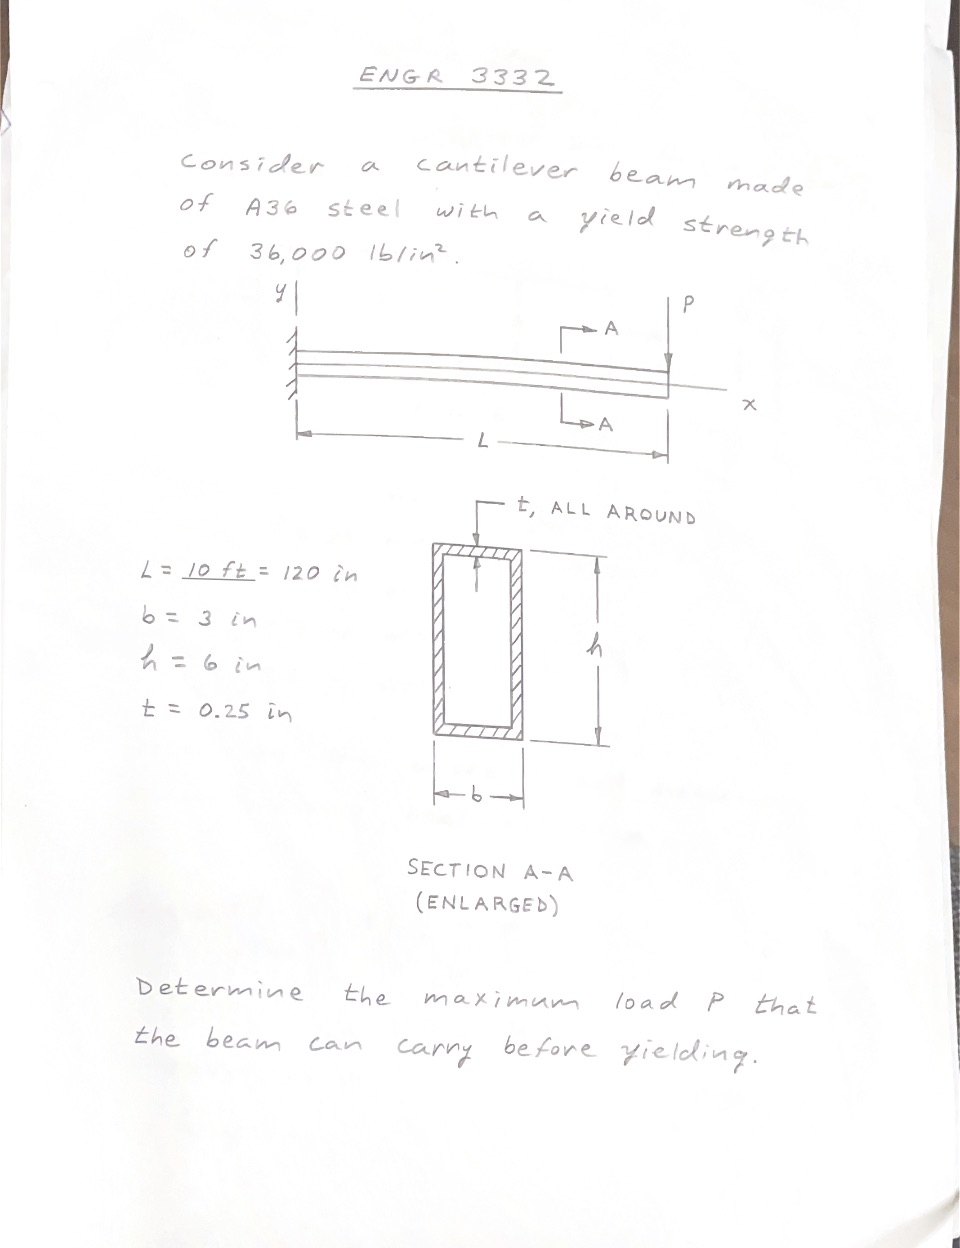 ENGR 3332
Consider a cantilever beam made
of A36 steel with a yield strength
of 36,000 lb/in².
y
P
A
x
A
L
t, ALL AROUND
L = 10 ft = 120 in
b = 3 in
h = 6 in
t = 0.25 in
h
b
SECTION A-A
(ENLARGED)
Determine the maximum load P that
the beam can carry before yielding.